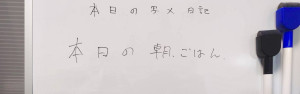 本日の写メ日記
本日の朝ごはん